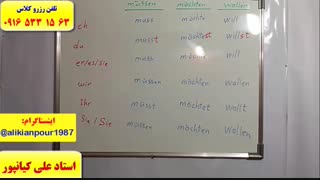 تلفن رزرو کلاس
۰۹۱۶ ۵۳۳ ۱۵ ۶۳
müssen möchten wollen
ich muss möchte will
du musst möchtest willst
er/es/sie muss möchte will
wir müssen möchten wollen
Ihr müsst möchtet wollt
Sie / Sie müssen möchten wollen
اینستاگرام:
@alikianpour1987
استاد علی کیانپور